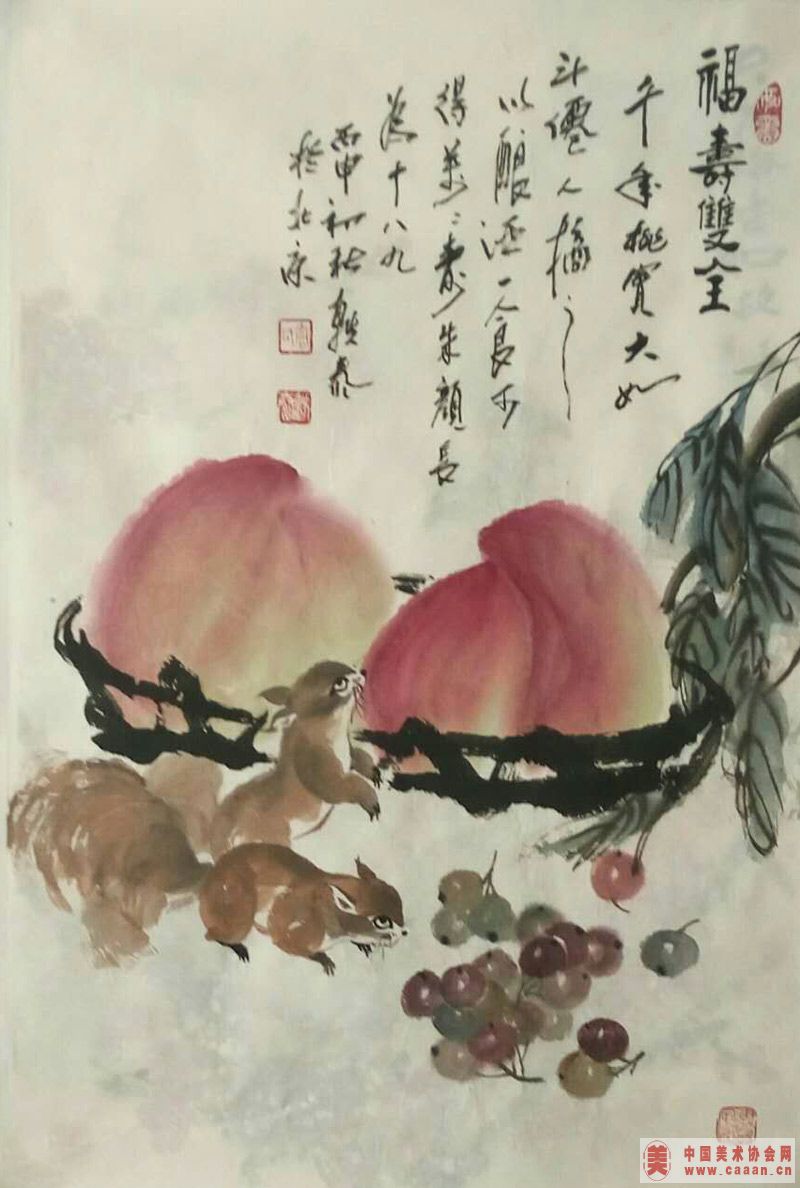 福壽雙全
千年桃實大如
斗僊人摘之
以釀酒一食可
得萬〻壽朱顏長
為十八九
丙申初秋
於北京
美
中国美术协会网
www.caaan.cn